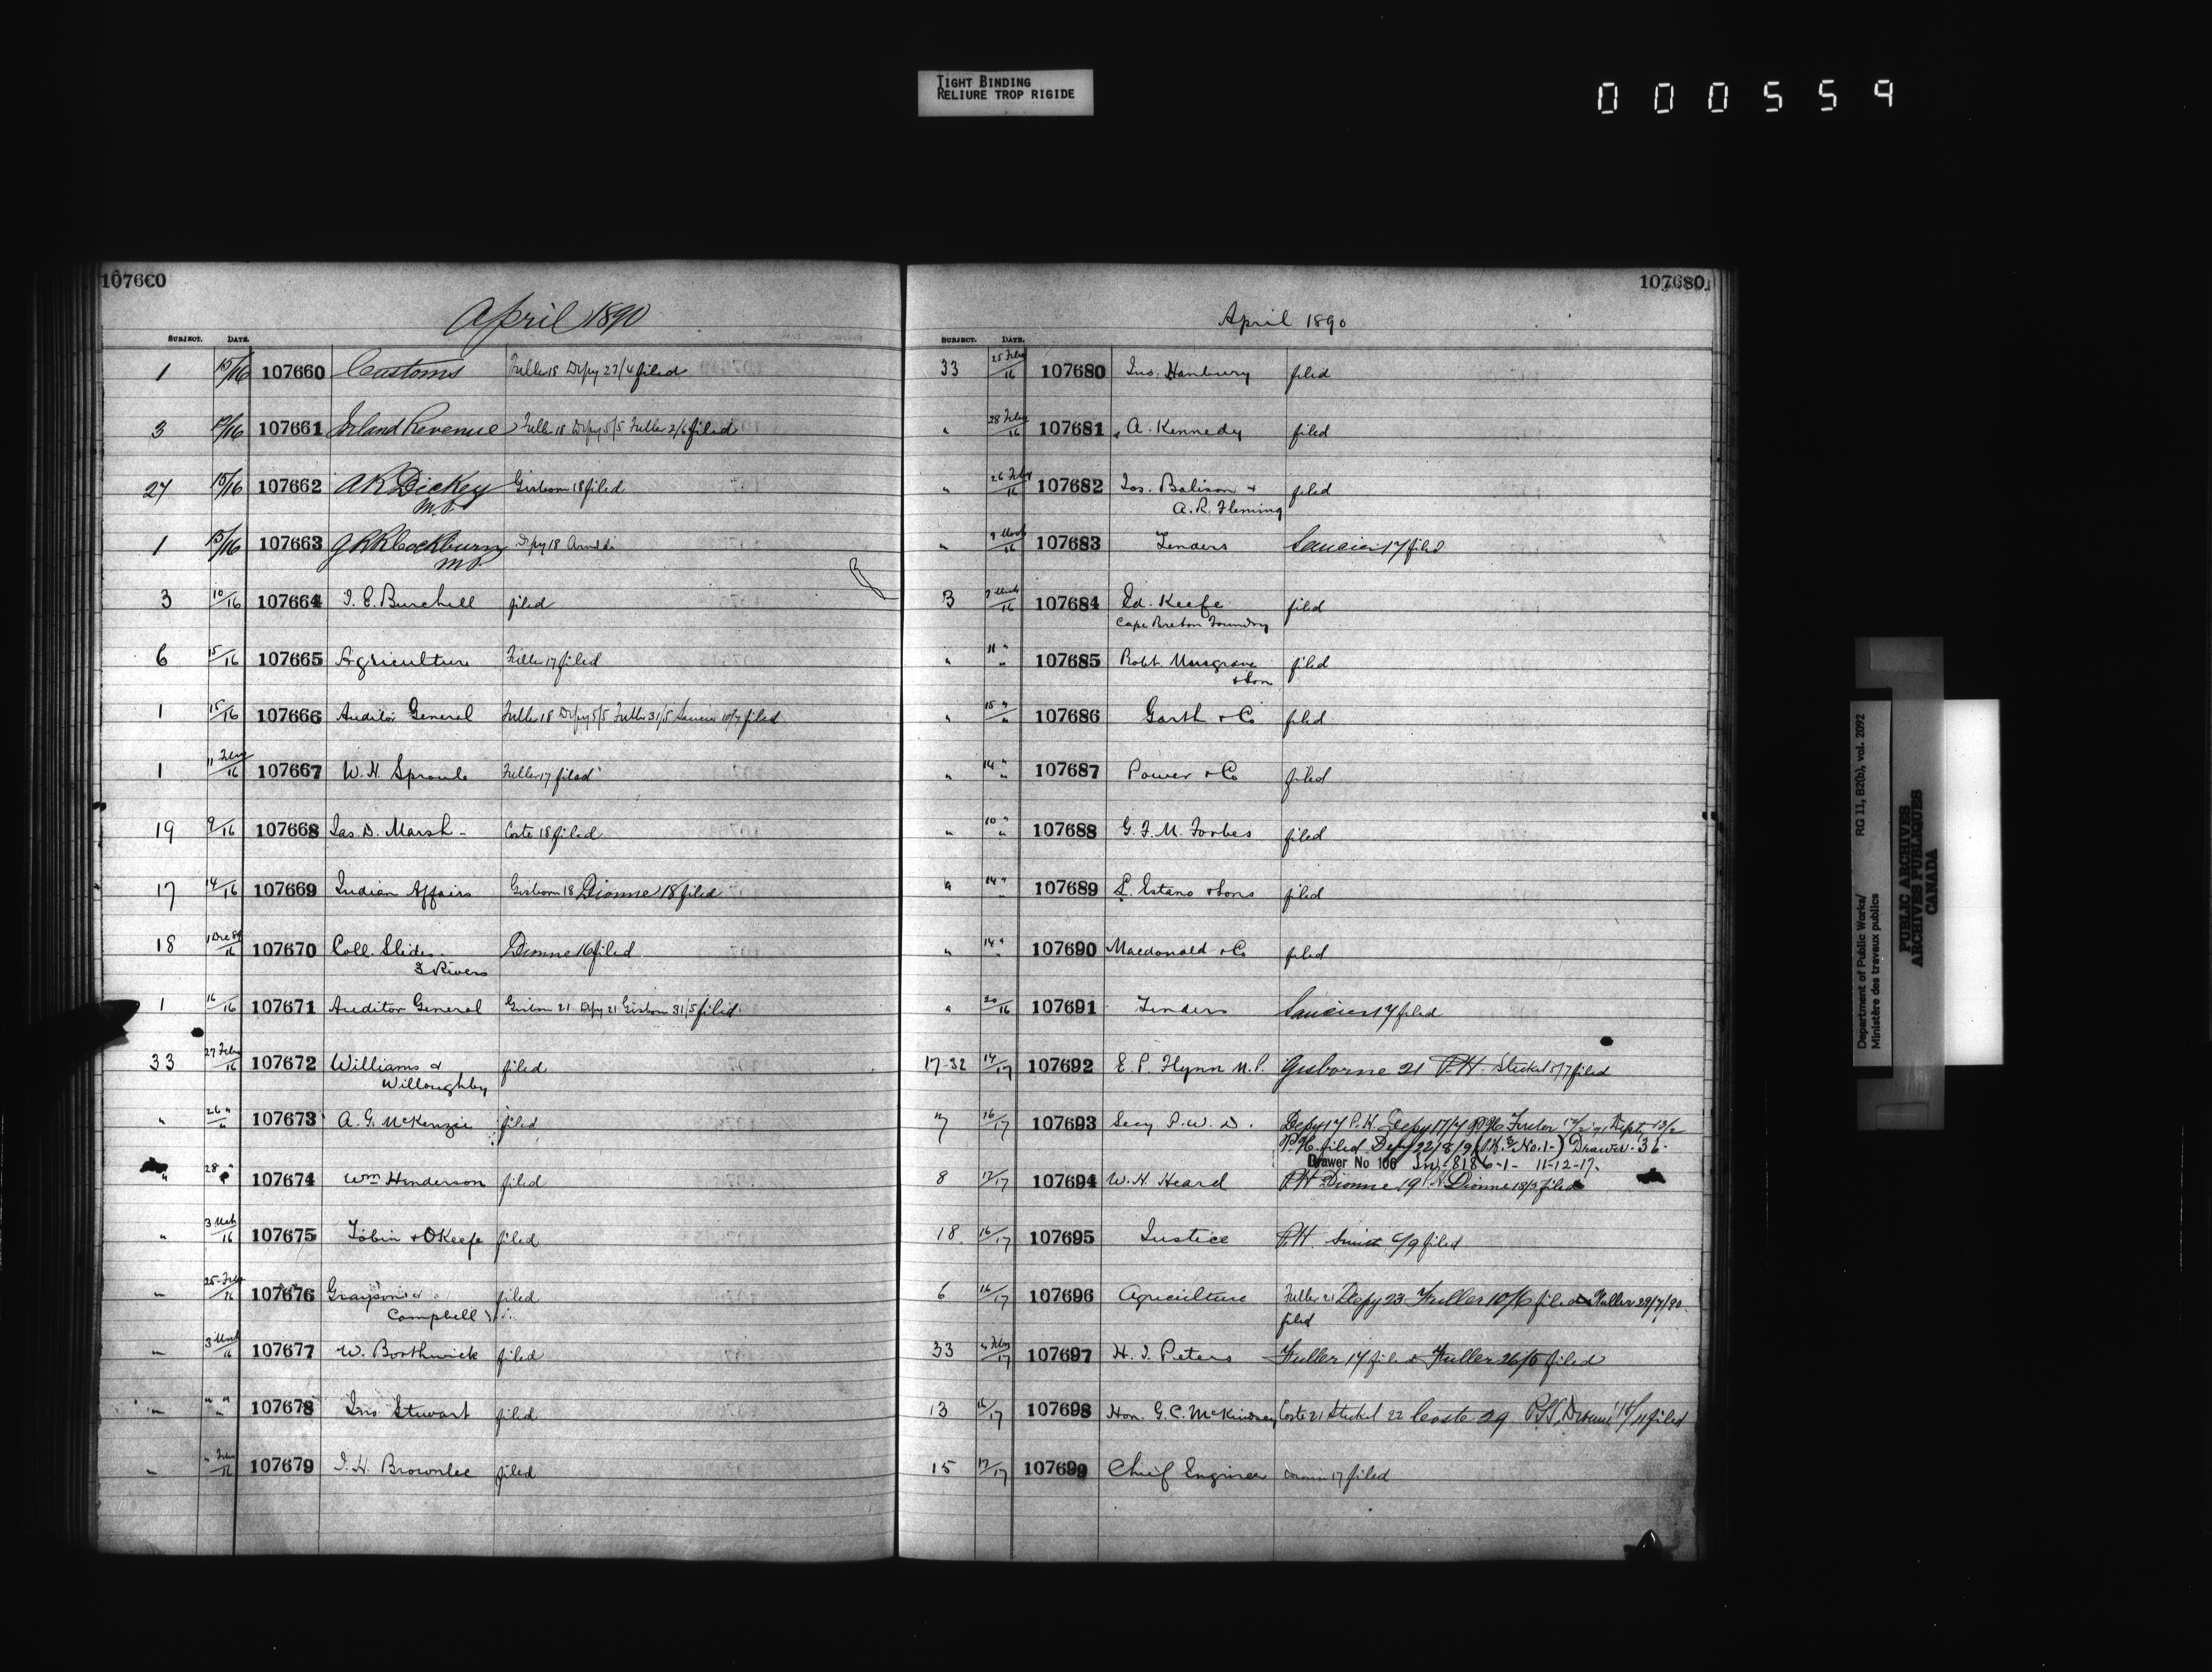 TIGHT BINDING
RELIURE TROP RIGIDE
000559
107660
April 1890
SUBJECT. DATE.
1 15/16 107660 Customs Fuller 18 Depy 23/4 filed
3 12/16 107661 Inland Revenue Fuller 18 Depy 5/5 Fuller 2/6 filed
27 15/16 107662 A R Dickey Gisborn 18 filed
M.P.
1 15/16 107663 G R R Cockburn Depy 18
M.P.
3 10/16 107664 J. E. Burchell filed
6 15/16 107665 Agriculture Fuller 17 filed
1 15/16 107666 Auditor General Fuller 18 Depy 5/5 Fuller 31/5 Saucier 10/7 filed
1 11 Feby/16 107667 W. H. Sproule Fuller 17 filed
19 9/16 107668 Jas. D. Marsh - Coste 18 filed
17 14/16 107669 Indian Affairs Gisborn 18 Dionne 18 filed
18 1 Dec 89/16 107670 Coll. Slides. Dionne 16 filed
3 Rivers
1 16/16 107671 Auditor General Gisborn 21 Depy 21 Gisborn 31/5 filed
33 27 Feby/16 107672 Williams & filed
Willoughby
" 26 "/" 107673 A. G. McKenzie filed
" 28 " 107674 Wm Henderson filed
" 3 Mch/16 107675 Tobin & OKeefe filed
" 25 Feby/16 107676 Grayson & filed
Campbell
" 3 Mch/16 107677 W. Borthwick filed
" " "/" 107678 Jno Stewart filed
" " Feby/16 107679 J. H. Brownlee filed
107680
April 1890
SUBJECT. DATE.
33 25 Feby/16 107680 Jno. Hanbury filed
" 28 Feby/16 107681 A. Kennedy filed
" 26 Feby/16 107682 Jos. Balison & filed
A. R. Fleming
" Mch/16 107683 Tenders Saucier 17 filed
3 Mch/16 107684 Ed. Keefe filed
Cape Breton Foundry
" 11 "/" 107685 Robt. Musgrave filed
& Son
" 15 "/" 107686 Garth & Co filed
" 14 "/" 107687 Power & Co filed
" 10 "/" 107688 G. F. M. Forbes filed
" 14 "/" 107689 L. Estano & Sons filed
" 14 "/" 107690 Macdonald & Co filed
" 20/16 107691 Tenders Saucier 17 filed
17-32 14/17 107692 E. P. Flynn M.P. Gisborne 21 P.H. Steckel 5/7 filed
7 16/17 107693 Secy P. W. D. Depy 17 P.H. Depy 17/4 P.H. Fuller Dept. 13/2
P.H. filed Depy 22/8/9 No. 1-) Drawer - 36-
Drawer No 106 In,-8186-1- 11-12-17-
8 12/17 107694 W. H. Heard P.H. Dionne 19 P.H. Dionne 18/3 filed
18. 16/17 107695 Justice P.H. 6/9 filed
6 16/17 107696 Agriculture Fuller 21 Depy 23 Fuller 10/6 filed Fuller 29/7/90.
filed
33 Feby/17 107697 H. J. Peters Fuller 17 filed Fuller 26/5 filed
13 16/17 107698 Hon. G. C. McKindsey Coste 21 Steckel 22 Coste 29 Dionne 15/11 filed
15 17/17 107699 Chief Engineer 17 filed
Department of Public Works/ RG 11, B2(b), vol. 2092
Ministère des travaux publics
PUBLIC ARCHIVES
ARCHIVES PUBLIQUES
CANADA